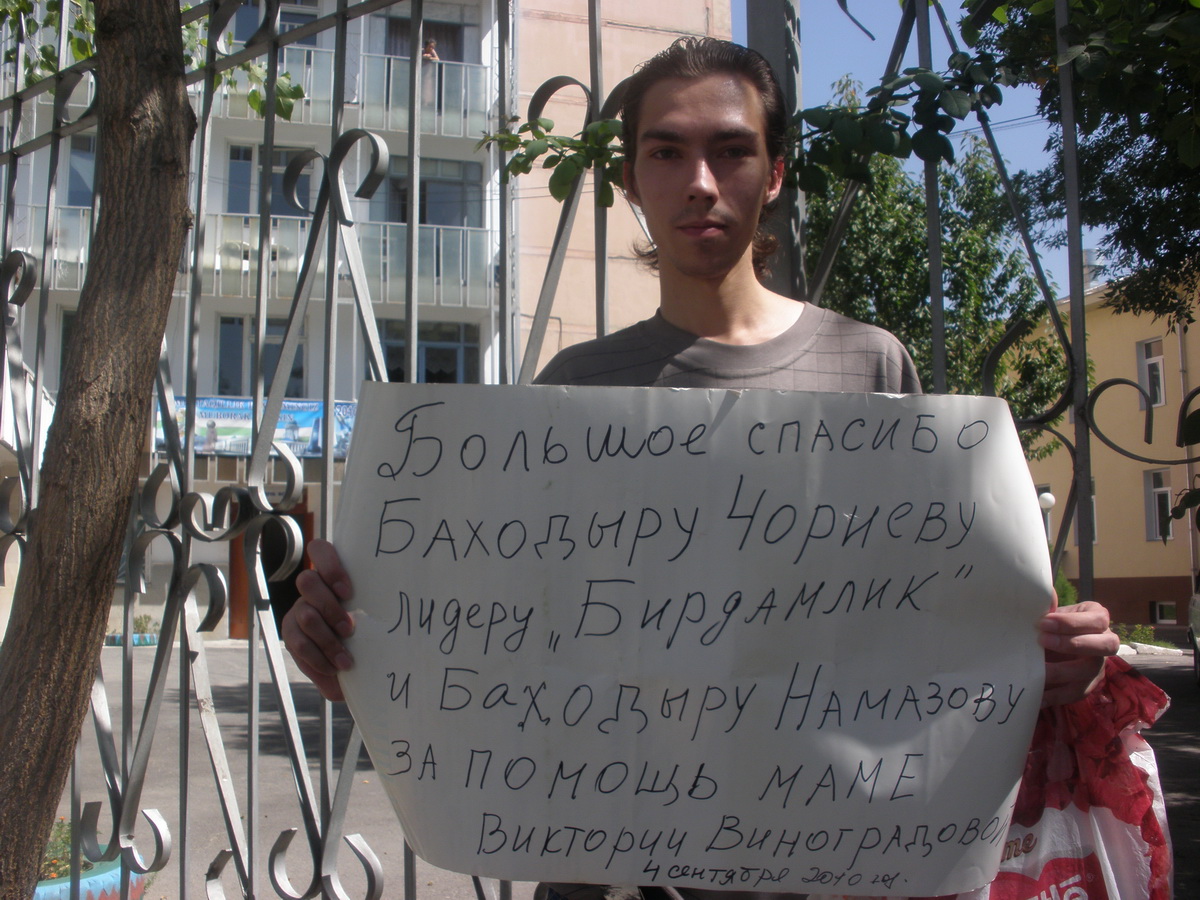 Большое спасибо
Баходыру Чориеву
лидеру „Бирдамлик"
и Баходыру Намазову
за помощь маме
Виктории Виноградовой
4 сентября 2010 г.